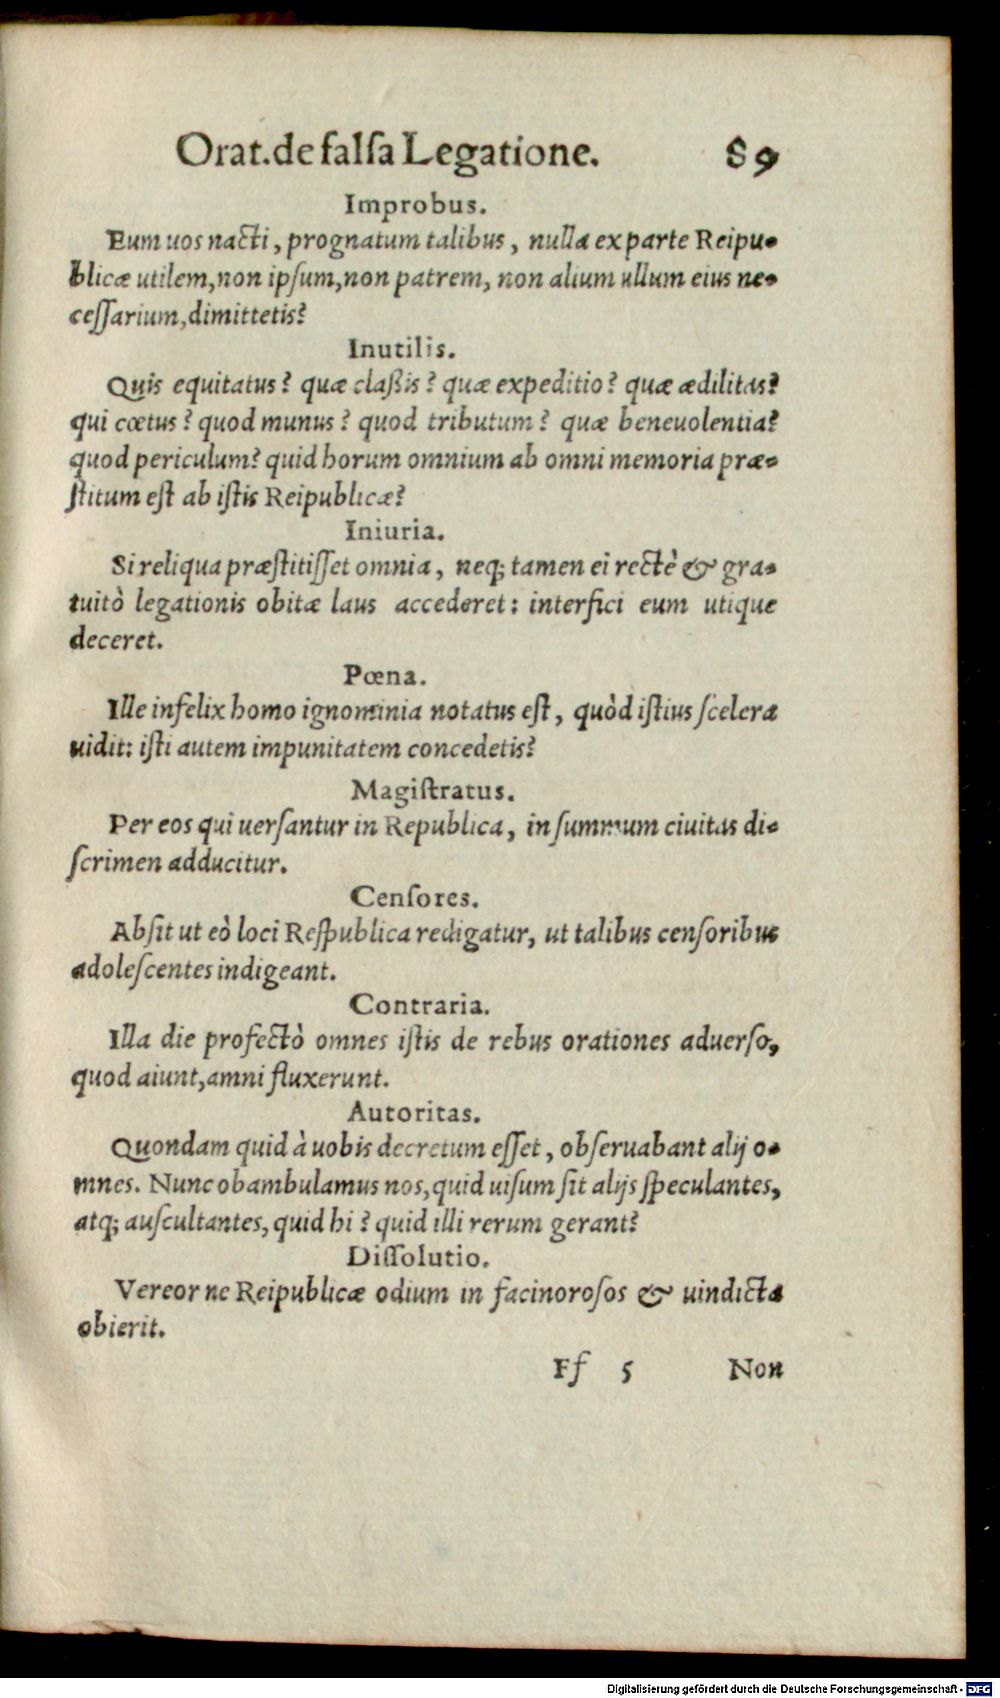 Orat. de falſa Legatione. 89
Improbus.
Eum uos nacti, prognatum talibus, nulla ex parte Reipu-
blicæ utilem, non ipſum, non patrem, non alium ullum eius ne-
ceſſarium, dimittetis?
Inutilis.
Quis equitatus? quæ claßis? quæ expeditio? quæ ædilitas?
qui cœtus? quod munus? quod tributum? quæ beneuolentia?
quod periculum? quid horum omnium ab omni memoria præ-
ſtitum eſt ab iſtis Reipublicæ?
Iniuria.
Si reliqua præſtitiſſet omnia, neq; tamen ei rectè & gra-
tuitò legationis obitæ laus accederet: interfici eum utique
deceret.
Pœna.
Ille infelix homo ignominia notatus eſt, quòd iſtius ſcelera
uidit: iſti autem impunitatem concedetis?
Magiſtratus.
Per eos qui uerſantur in Republica, in ſummum ciuitas di-
ſcrimen adducitur.
Cenſores.
Abſit ut eò loci Reſpublica redigatur, ut talibus cenſoribus
adoleſcentes indigeant.
Contraria.
Illa die profectò omnes iſtis de rebus orationes aduerſo,
quod aiunt, amni fluxerunt.
Autoritas.
Quondam quid à uobis decretum eſſet, obſeruabant alij o-
mnes. Nunc obambulamus nos, quid uiſum ſit alijs ſpeculantes,
atq; auſcultantes, quid hi? quid illi rerum gerant?
Diſſolutio.
Vereor ne Reipublicæ odium in facinoroſos & uindicta
obierit.
Ff 5 Non
Digitalisierung gefördert durch die Deutsche Forschungsgemeinschaft - DFG